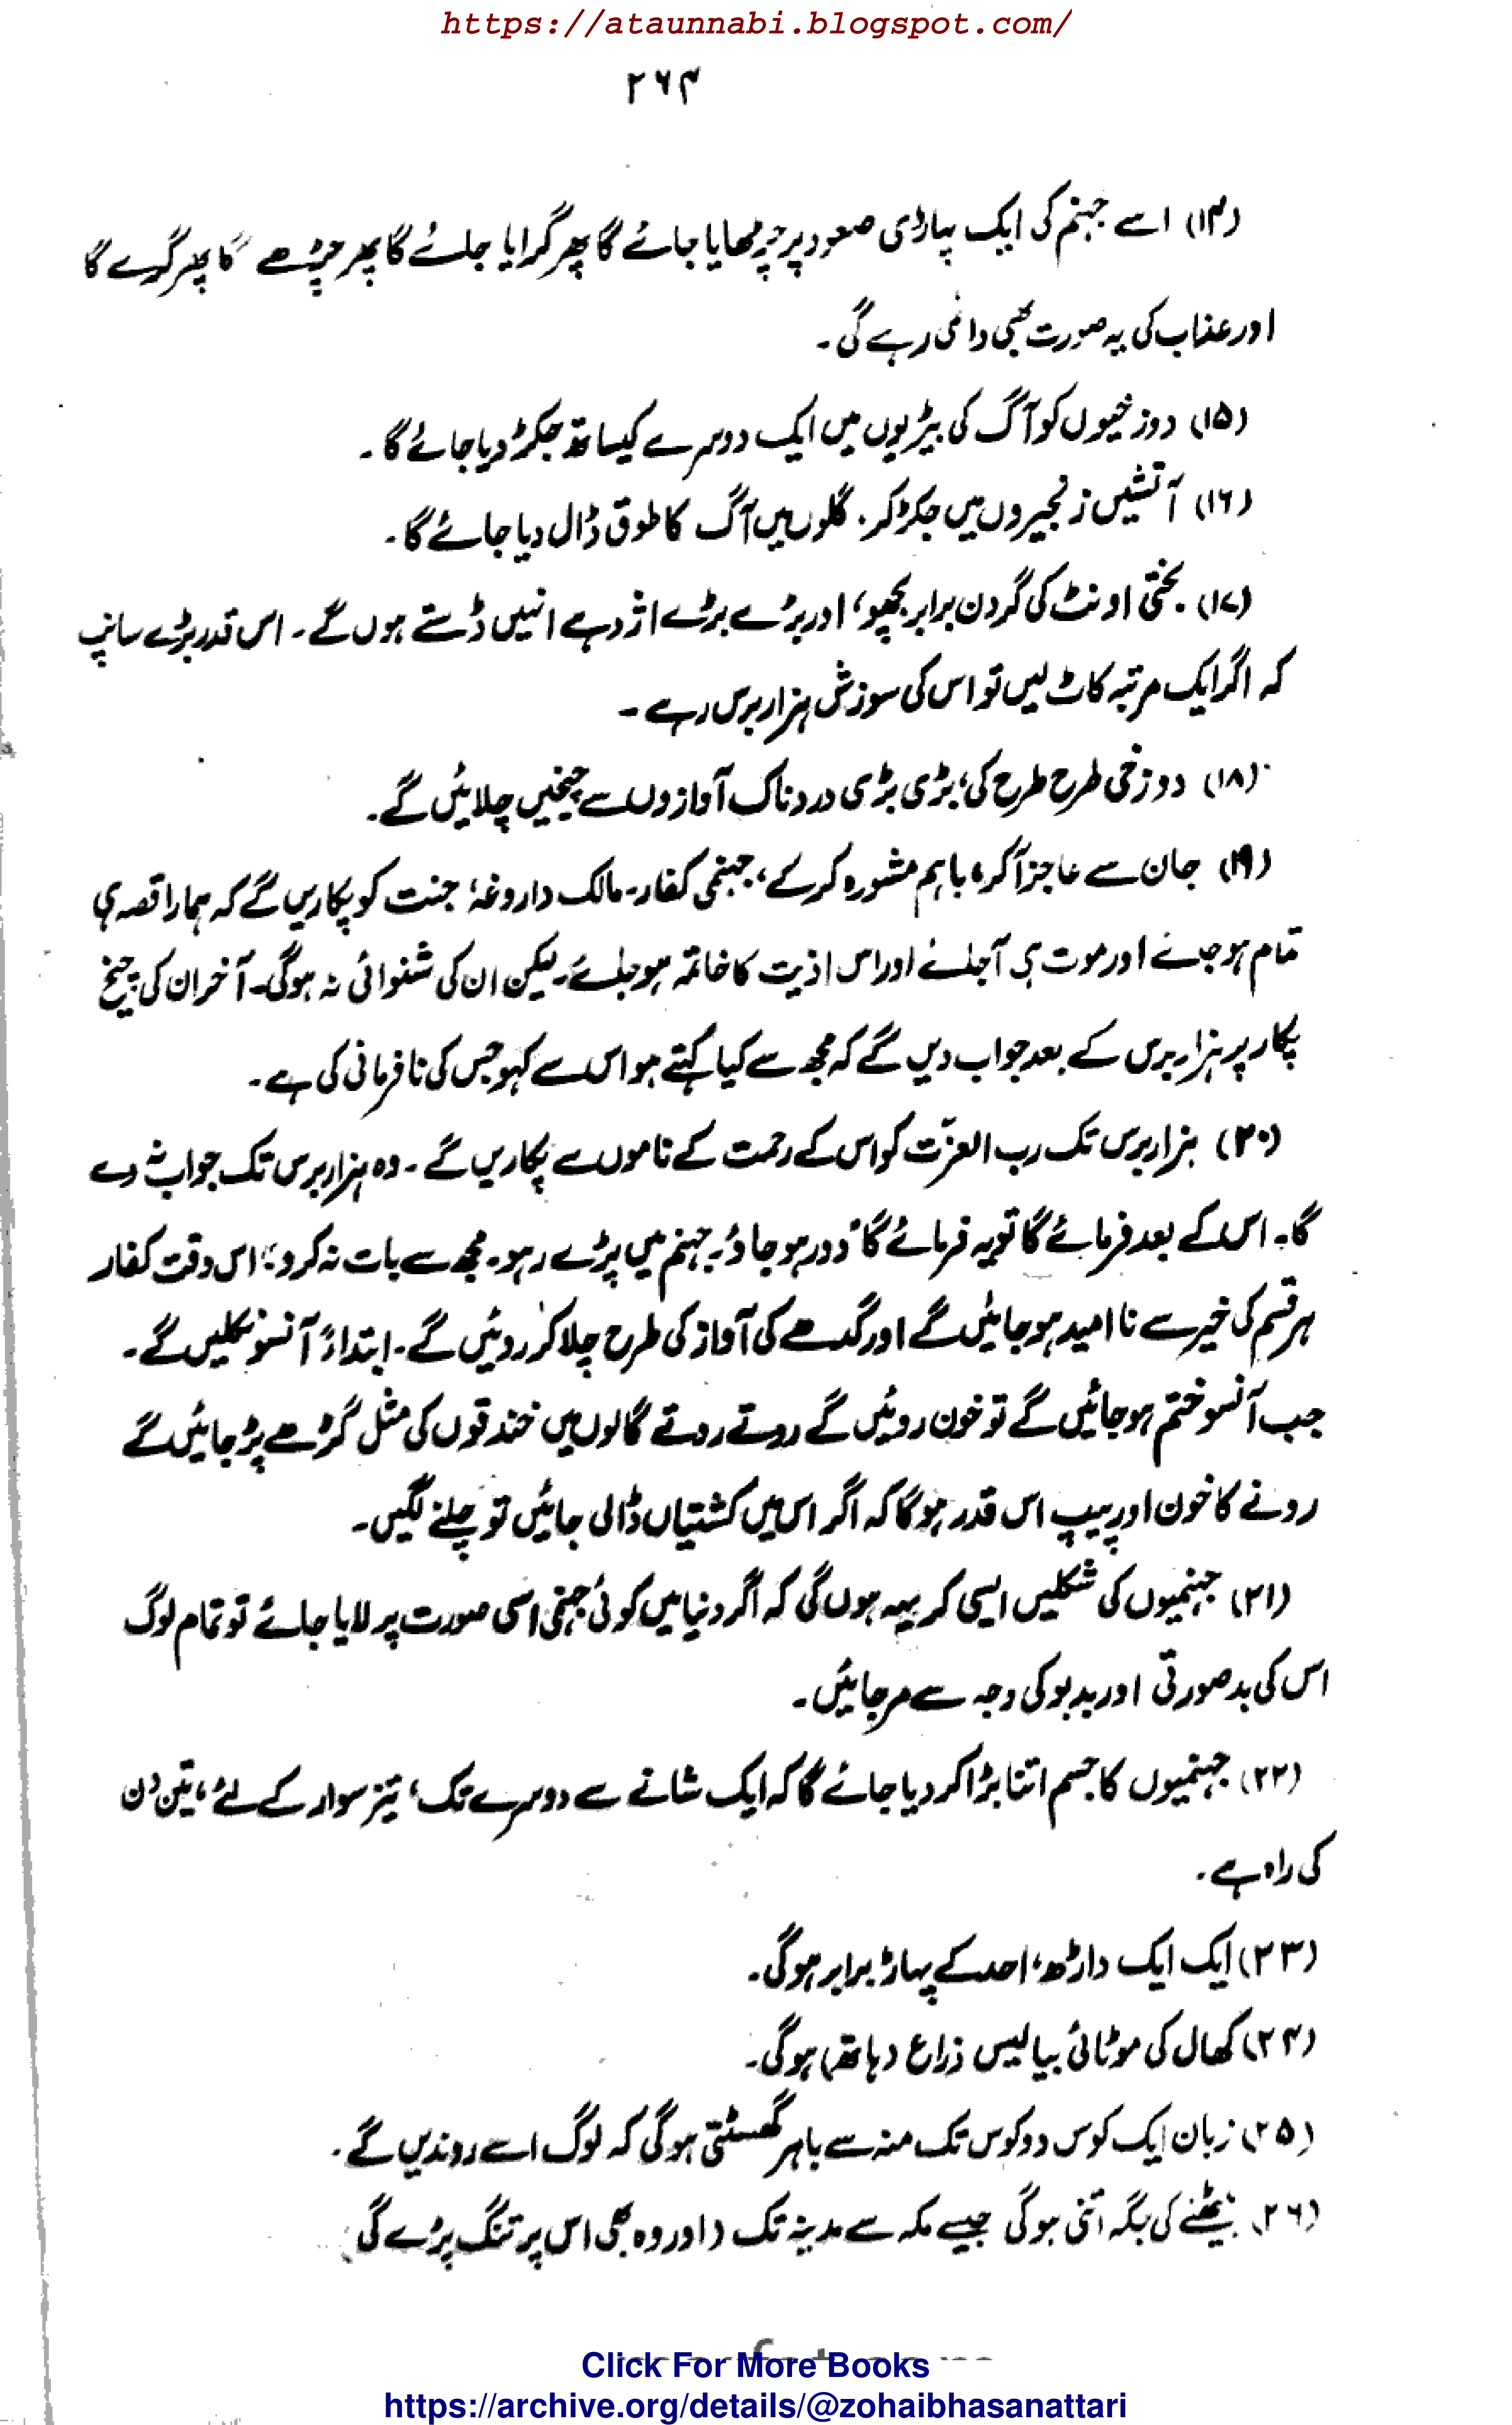 https://ataunnabi.blogspot.com/
۲۶۴
(۱۴) اسے جہنم کی ایک پہاڑی صعود پر چڑھایا جائے گا پھر گرایا جائے گا پھر چڑھے گا پھر گرے گا
اور عذاب کی یہ صورت بھی دائمی رہے گی۔
(۱۵) دوزخیوں کو آگ کی بیڑیوں میں ایک دوسرے کیساتھ جکڑ دیا جائے گا۔
(۱۶) آتشیں زنجیروں میں جکڑ کر، گلوں میں آگ کا طوق ڈال دیا جائے گا۔
(۱۷) بختی اونٹ کی گردن برابر بچھو، اور بڑے بڑے اژدہے انہیں ڈستے ہوں گے۔ اس قدر بڑے سانپ
کہ اگر ایک مرتبہ کاٹ لیں تو اس کی سوزش ہزار برس رہے۔
(۱۸) دوزخی طرح طرح کی، بڑی بڑی دردناک آوازوں سے چیخیں چلائیں گے۔
(۱۹) جان سے عاجز آکر، باہم مشورہ کرکے، جہنمی کفار۔ مالک داروغۂ جنت کو پکاریں گے کہ ہمارا قصہ ہی
تمام ہو جائے اور موت ہی آجائے اور اس اذیت کا خاتمہ ہو جائے۔ لیکن ان کی شنوائی نہ ہوگی۔ آخر ان کی چیخ
پکار پر ہزار برس کے بعد جواب دیں گے کہ مجھ سے کیا کہتے ہو اس سے کہو جس کی نافرمانی کی ہے۔
(۲۰) ہزار برس تک رب العزّت کو اس کے رحمت کے ناموں سے پکاریں گے۔ وہ ہزار برس تک جواب نہ دے
گا۔ اس کے بعد فرمائے گا تو یہ فرمائے گا "دور ہو جاؤ۔ جہنم میں پڑے رہو۔ مجھ سے بات نہ کرو" اس وقت کفار
ہر قسم کی خیر سے ناامید ہو جائیں گے اور گدھے کی آواز کی طرح چلا کر روئیں گے۔ ابتداءً آنسو نکلیں گے۔
جب آنسو ختم ہو جائیں گے تو خون روئیں گے روتے روتے گالوں میں خندقوں کی مثل گڑھے پڑ جائیں گے
رونے کا خون اور پیپ اس قدر ہو گا کہ اگر اس میں کشتیاں ڈالی جائیں تو چلنے لگیں۔
(۲۱) جہنمیوں کی شکلیں ایسی کریہہ ہوں گی کہ اگر دنیا میں کوئی جہنمی اسی صورت پر لایا جائے تو تمام لوگ
اس کی بدصورتی اور بدبو کی وجہ سے مر جائیں۔
(۲۲) جہنمیوں کا جسم اتنا بڑا کر دیا جائے گا کہ ایک شانے سے دوسرے تک، تیز سوار کے لئے، تین دن
کی راہ ہے۔
(۲۳) ایک ایک داڑھ، احد کے پہاڑ برابر ہوگی۔
(۲۴) کھال کی موٹائی بیالیس ذراع (ہاتھ) ہوگی۔
(۲۵) زبان ایک کوس دو کوس تک منہ سے باہر گھسٹتی ہوگی کہ لوگ اسے روندیں گے۔
(۲۶) بیٹھنے کی جگہ اتنی ہوگی جیسے مکہ سے مدینہ تک (اور وہ بھی اس پر تنگ پڑے گی)
Click For More Books
https://archive.org/details/@zohaibhasanattari